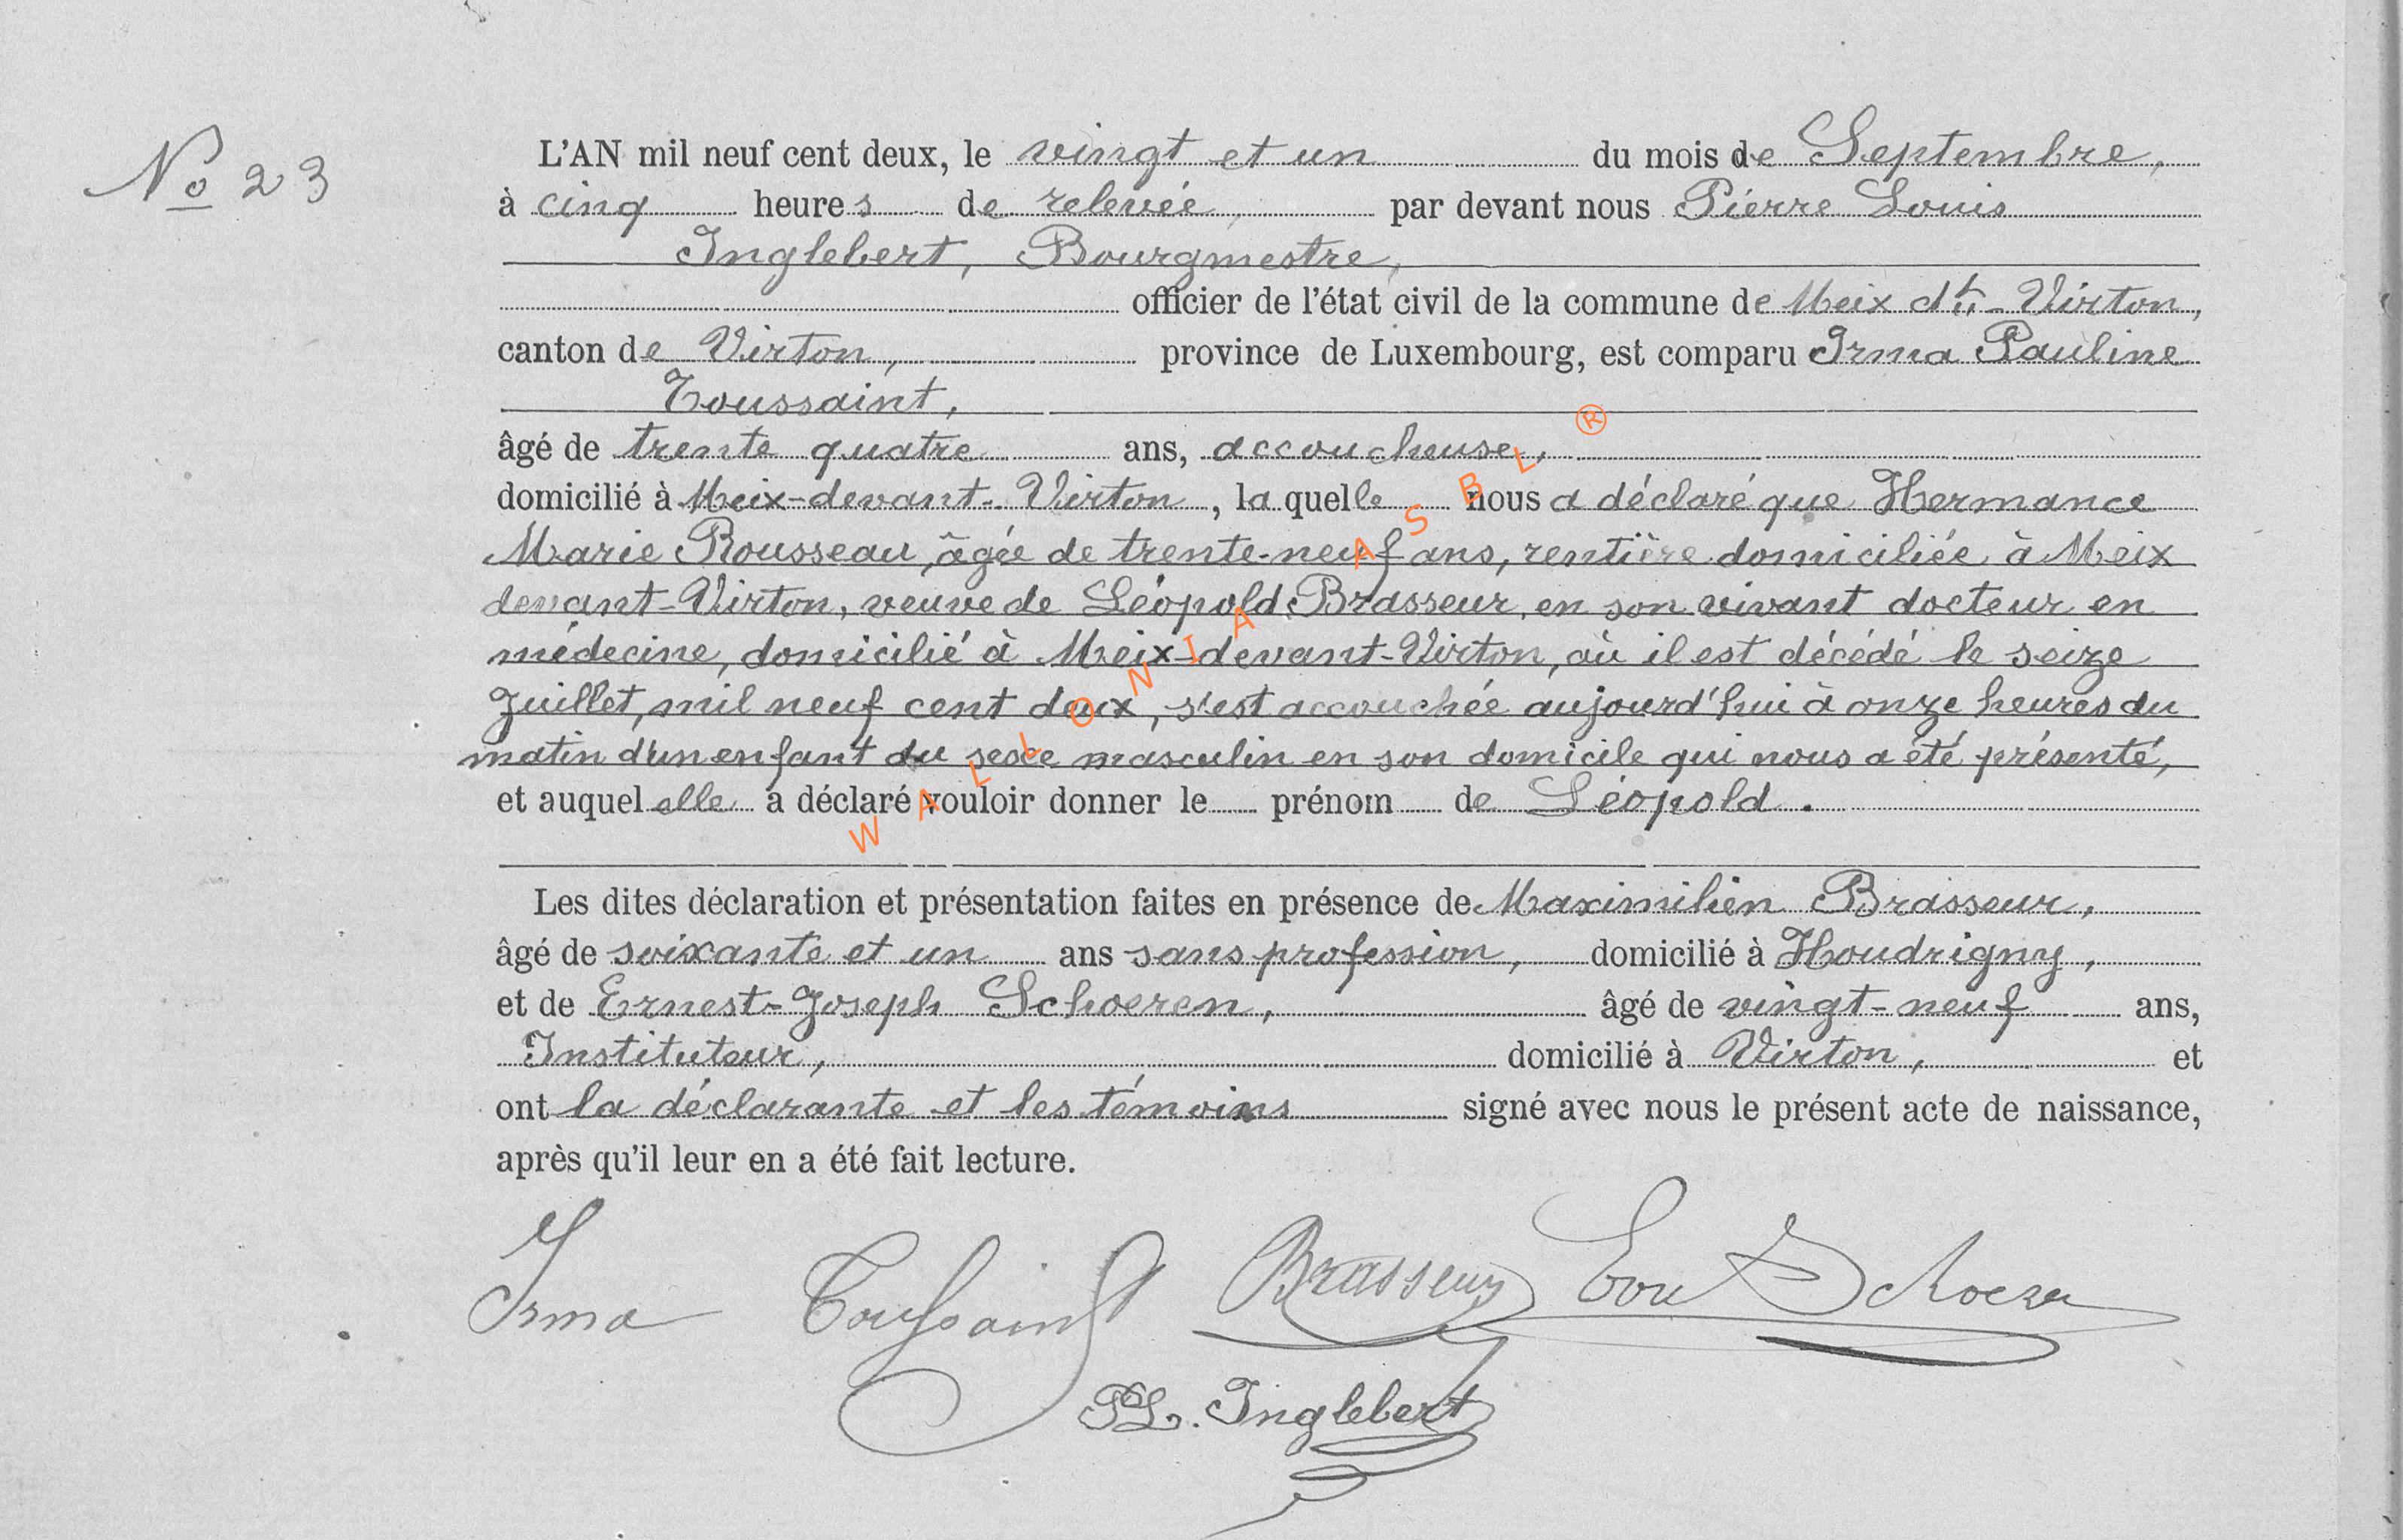 No 23
L'AN mil neuf cent deux, le vingt et un du mois de Septembre,
à cinq heures de relevée, par devant nous Pierre Louis
Inglebert, Bourgmestre,
officier de l'état civil de la commune de Meix dt-Virton,
canton de Virton, province de Luxembourg, est comparu Irma Pauline
Toussaint,
âgé de trente quatre ans, accoucheuse,
domicilié à Meix-devant-Virton, laquelle nous a déclaré que Hermance
Marie Rousseau, âgée de trente-neuf ans, rentière domiciliée à Meix
devant-Virton, veuve de Léopold Brasseur, en son vivant docteur en
médecine, domicilié à Meix-devant-Virton, où il est décédé le seize
Juillet, mil neuf cent deux, s'est accouchée aujourd'hui à onze heures du
matin d'un enfant du sexe masculin en son domicile qui nous a été présenté,
et auquel elle a déclaré vouloir donner le prénom de Léopold.
Les dites déclaration et présentation faites en présence de Maximilien Brasseur,
âgé de soixante et un ans sans profession, domicilié à Houdrigny,
et de Ernest-Joseph Schoeren, âgé de vingt-neuf ans,
Instituteur, domicilié à Virton, et
ont la déclarante et les témoins signé avec nous le présent acte de naissance,
après qu'il leur en a été fait lecture.
Irma Toussaint Brasseur Schoeren
PL. Inglebert
WALLONIA ASBL ®